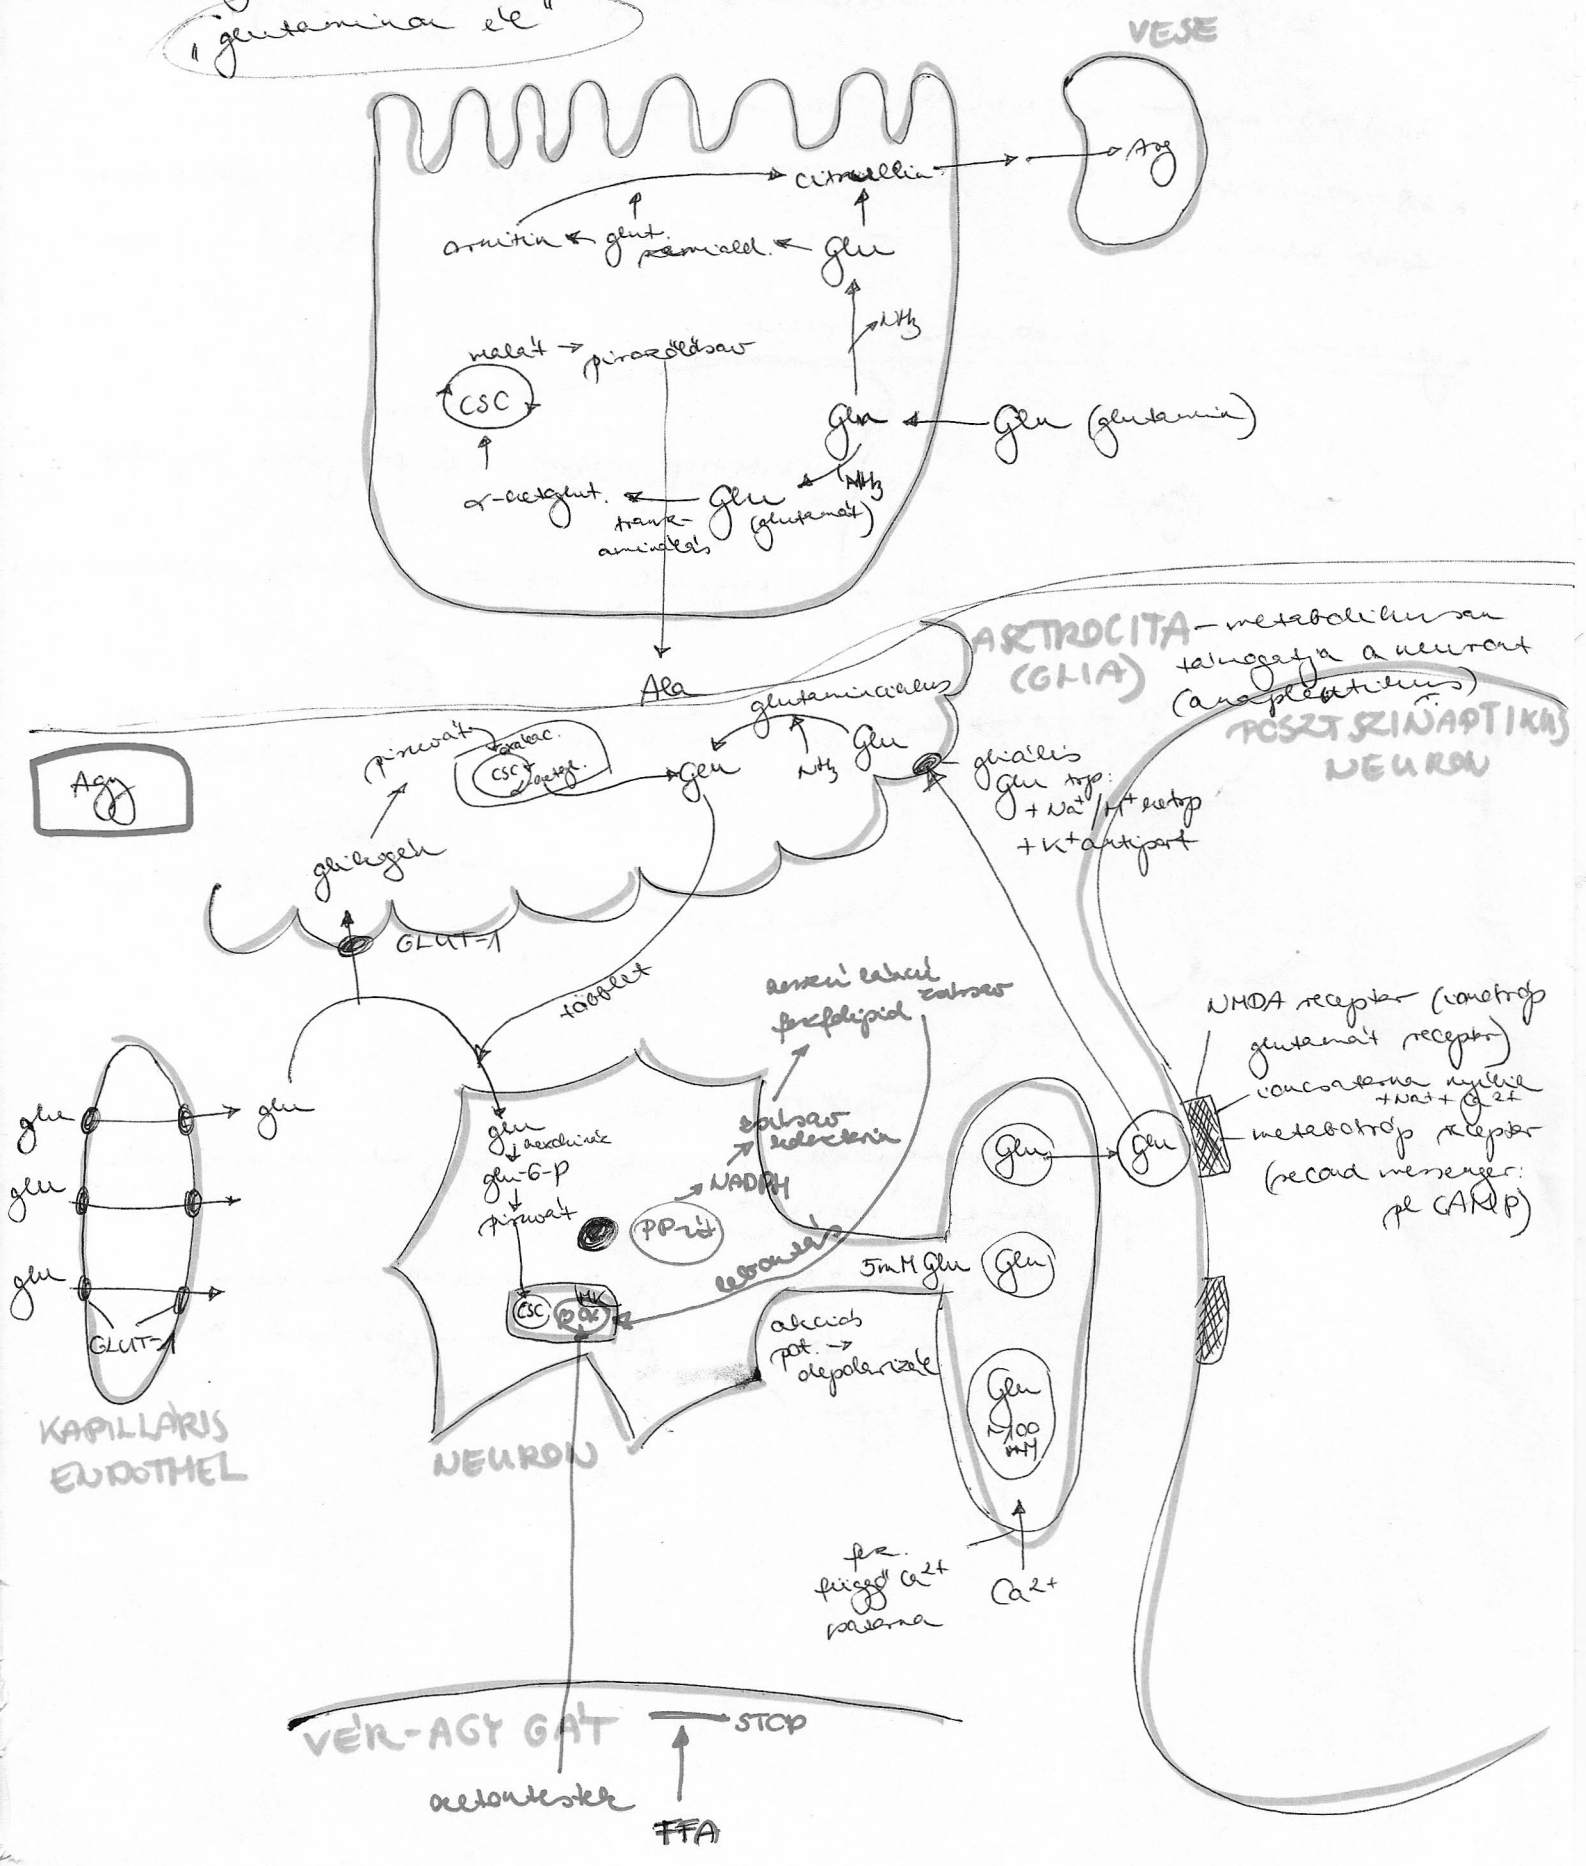 "glutaminon él"
VESE
citrullin
Arg
ornitin
glut.
semiald.
Glu
NH3
malát
piroszőlősav
CSC
Gln
Glu (glutamin)
NH3
α-ketglut.
Glu
(glutamát)
transz-
aminálás
Ala
ASZTROCITA
(GLIA)
- metabolikusan
támogatja a neuront
(anaplerotikus)
POSZTSZINAPTIKUS
NEURON
Agy
piruvát
oxálac.
CSC
α-ketgl.
Gln
glutamincíklus
NH3
Glu
gliális
Glu trp:
+ Na+/H+ kotrp
+ K+ antiport
glikogén
GLUT-1
többlet
hosszú láncú
zsírsav
foszfolipid
NMDA receptor (ionotróp
glutamát receptor)
ioncsatorna nyílik
+ Na+ + Ca2+
- metabotróp receptor
(second messenger:
pl cAMP)
glu
glu
glu
glu
GLUT-1
KAPILLÁRIS
ENDOTHEL
glu
hexokináz
glu-6-P
piruvát
CSC
β Ox
MK
PP-út
NADPH
zsírsav
lebontás
NEURON
Glu
Glu
5mM Glu
Glu
akciós
pot. →
depolarizál
Glu
~100
mM
fesz.
függő Ca2+
csatorna
Ca2+
VÉR-AGY GÁT
STOP
ketontestek
FFA